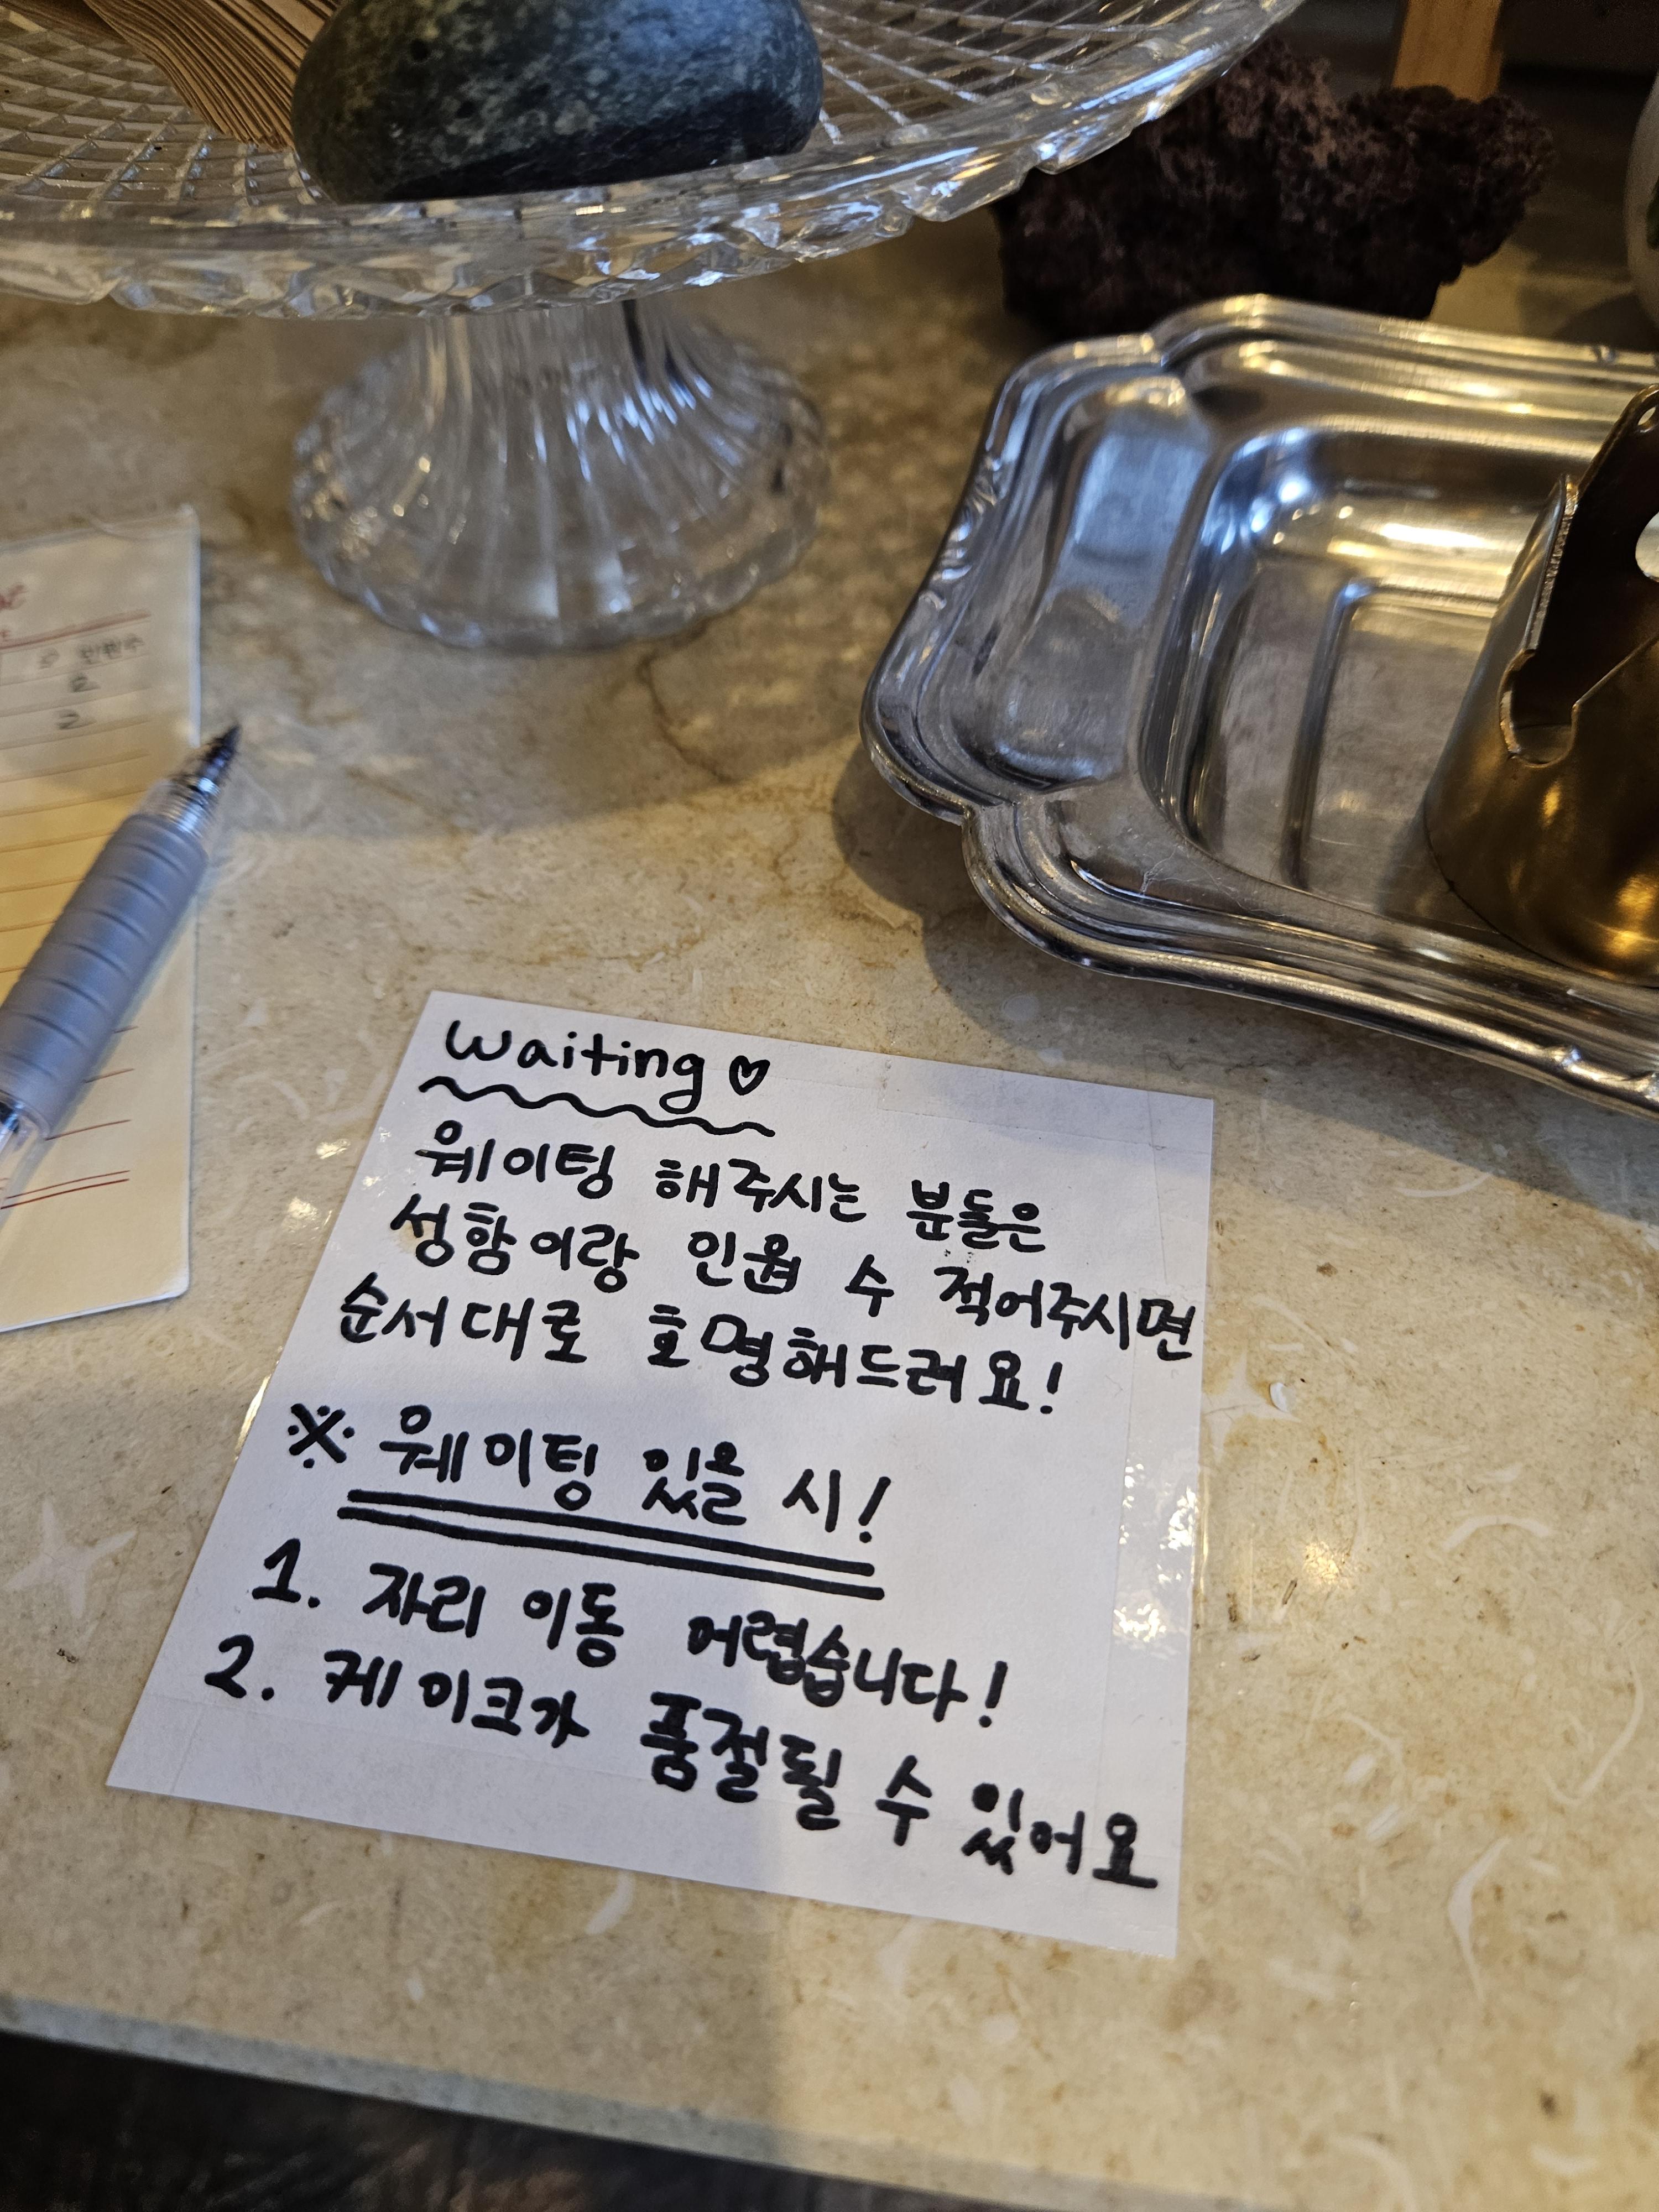 Waiting ♡
웨이팅 해주시는 분들은
성함이랑 인원 수 적어주시면
순서대로 호명해드려요!
※ 웨이팅 있을 시!
1. 자리 이동 어렵습니다!
2. 케이크가 품절될 수 있어요
인원수
2
2